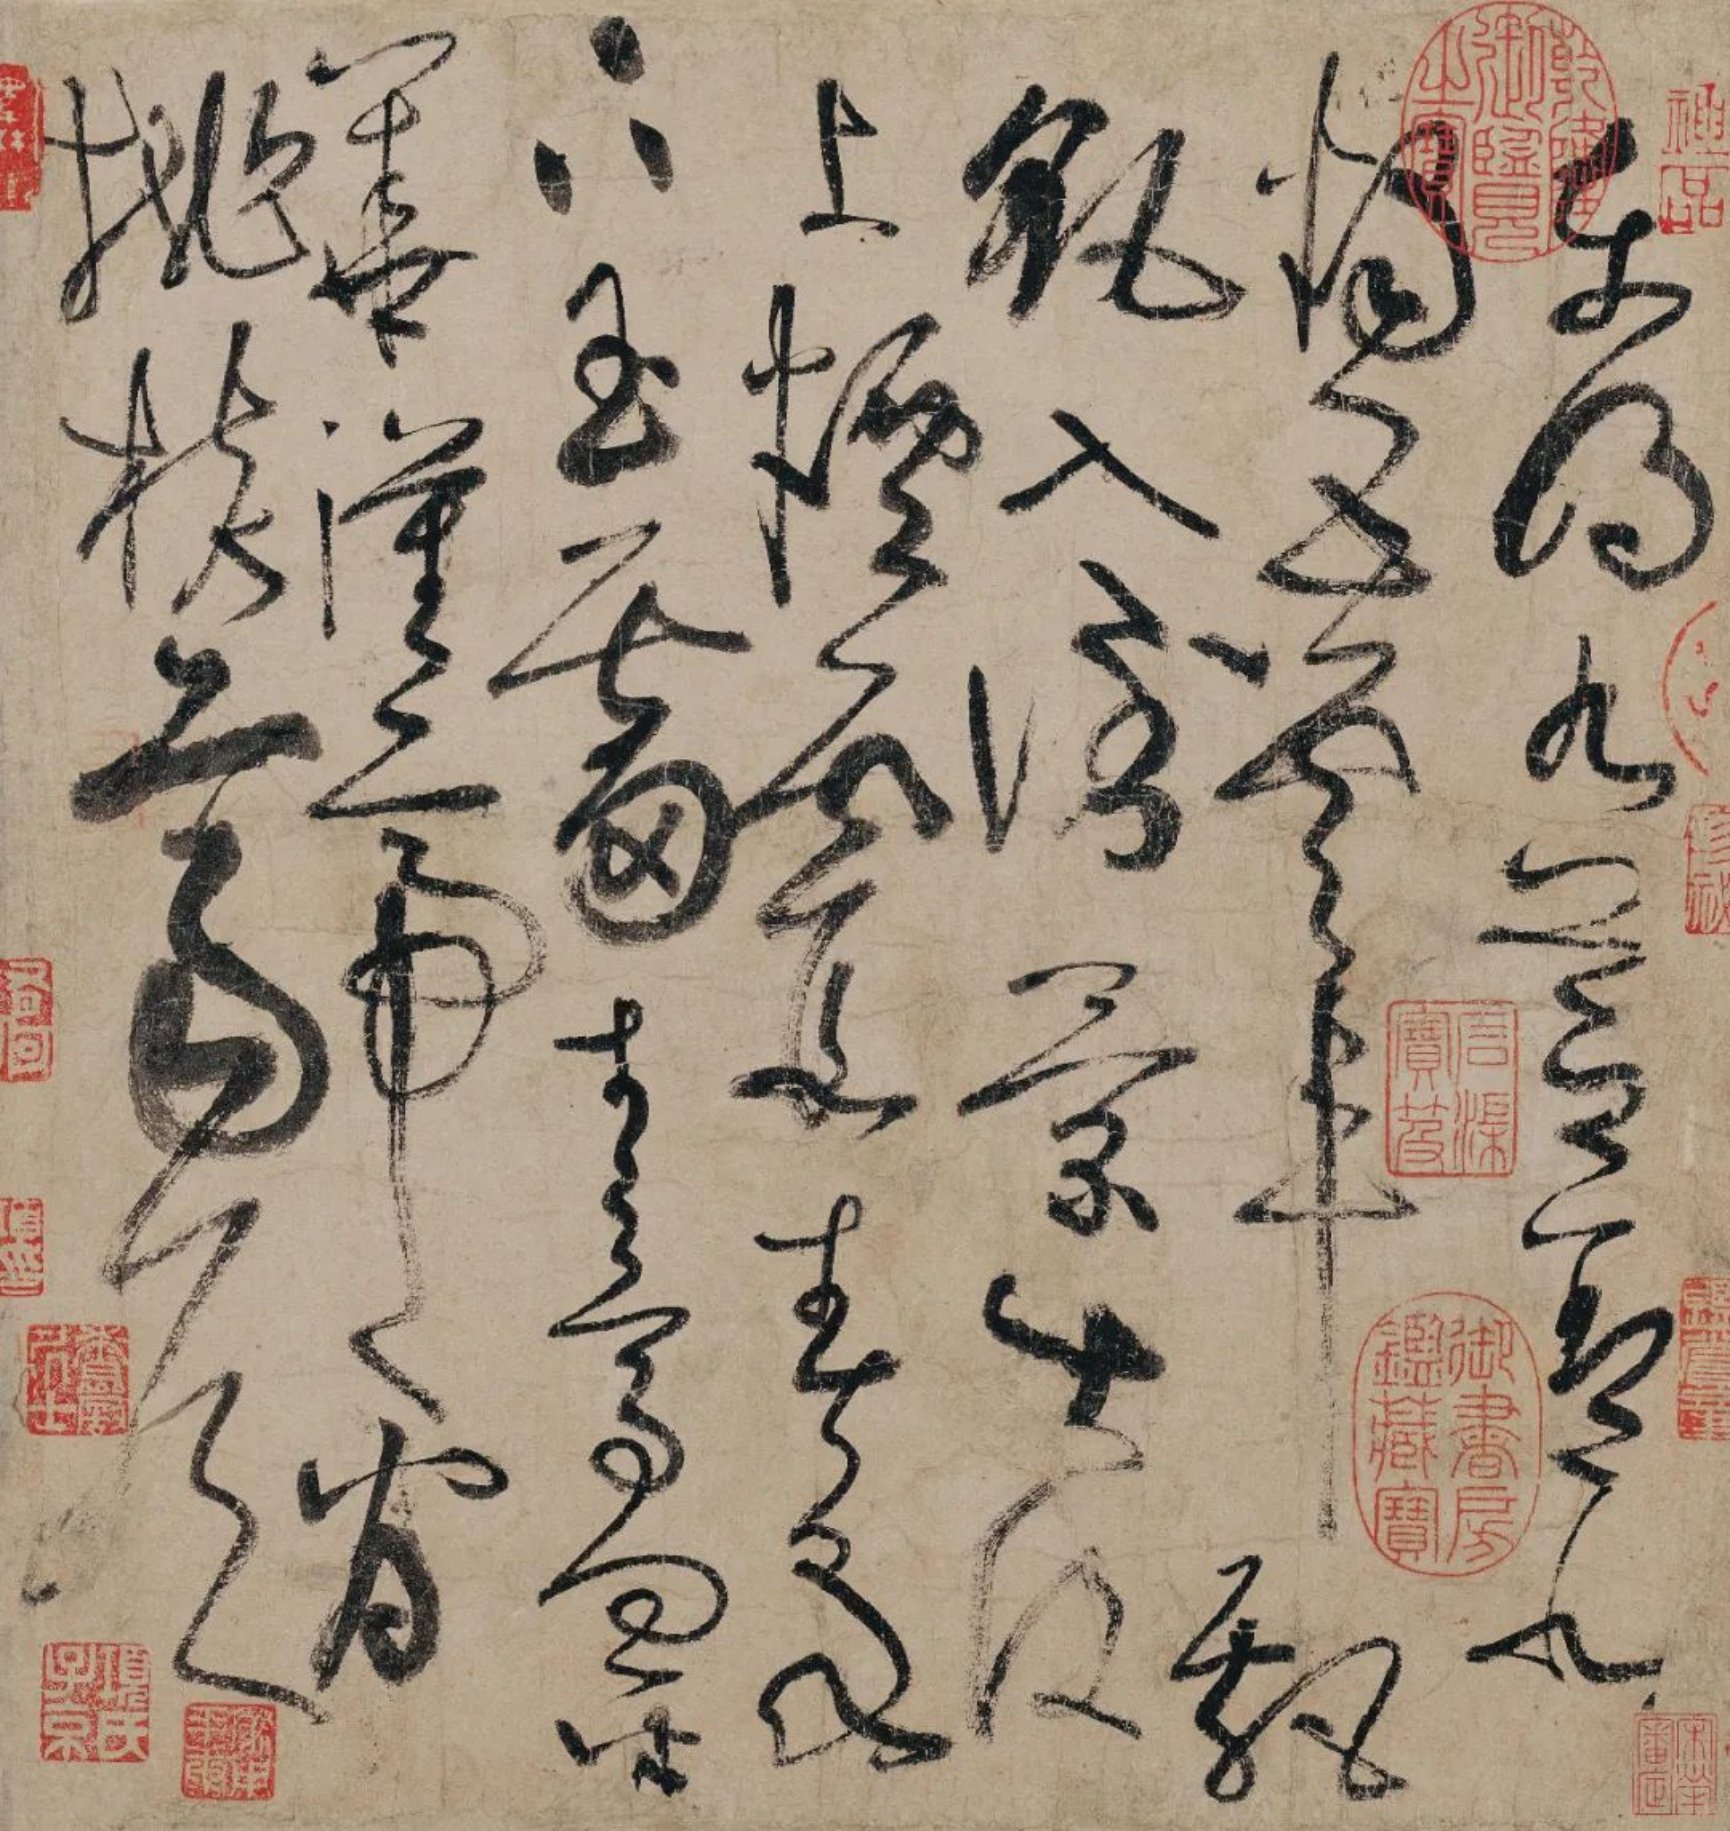 東明九芝蓋北
燭五雲車飄
飖入倒景出没
上煙霞春泉
下玉霤青鳥向金
華漢帝看
桃核齊侯
神品
乾隆御覽之寶
石渠寶笈
御書房鑑藏寶